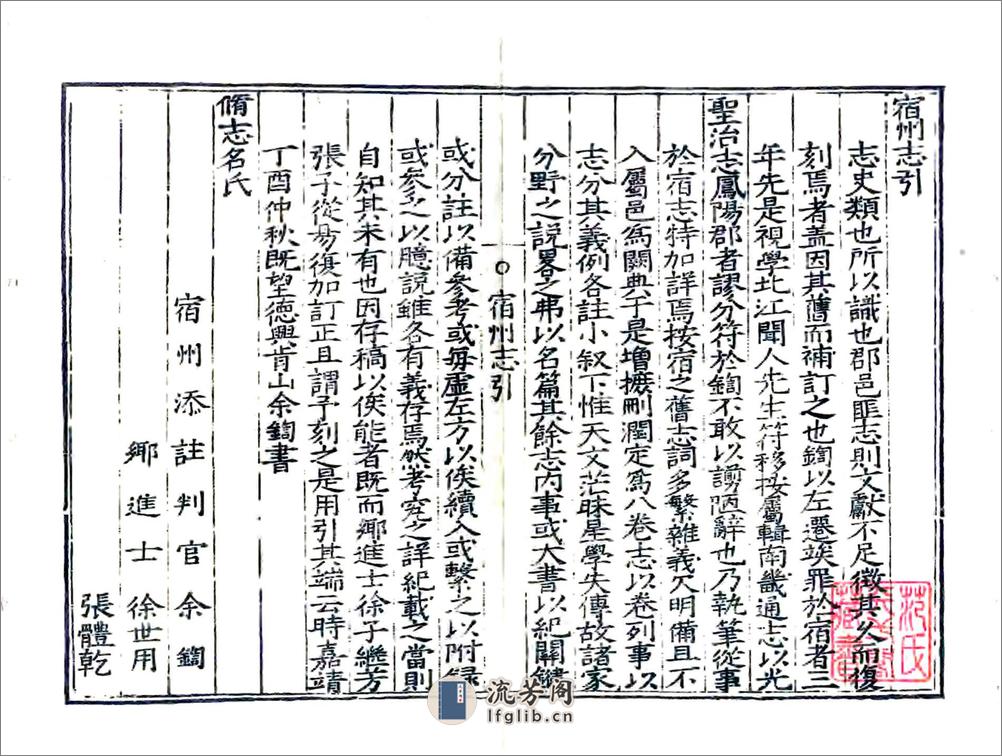 宿州志引
志史類也所以識也郡邑匪志則文獻不足徵其久而復
刻焉者盖因其舊而補訂之也鍧以左遷竢罪於宿者三
年先是視學北江聞人先生符移按屬輯南畿通志以光
聖治志鳳陽郡者謬分符於鍧不敢以謭陋辭也乃執筆從事
於宿志特加詳焉按宿之舊志詞多繁雜義欠明備且不
入屬邑爲闕典于是增摭刪潤定爲八卷志以卷列事以
志分其義例各註小叙下惟天文茫昧星學失傳故諸家
分野之說畧之弗以名篇其餘志内事或大書以紀關鍵
宿州志引
或分註以備參考或每虛左方以俟續入或繫之以附録
或參之以臆說雖各有義存焉然考究之詳紀載之當則
自知其未有也因存稿以俟能者既而鄉進士徐子繼芳
張子從昜復加訂正且謂予刻之是用引其端云時嘉靖
丁酉仲秋既望德興肯山余鍧書
脩志名氏
宿州添註判官余鍧
鄉進士徐世用
張體乾
范氏
藏書
流芳阁
lfglib.cn